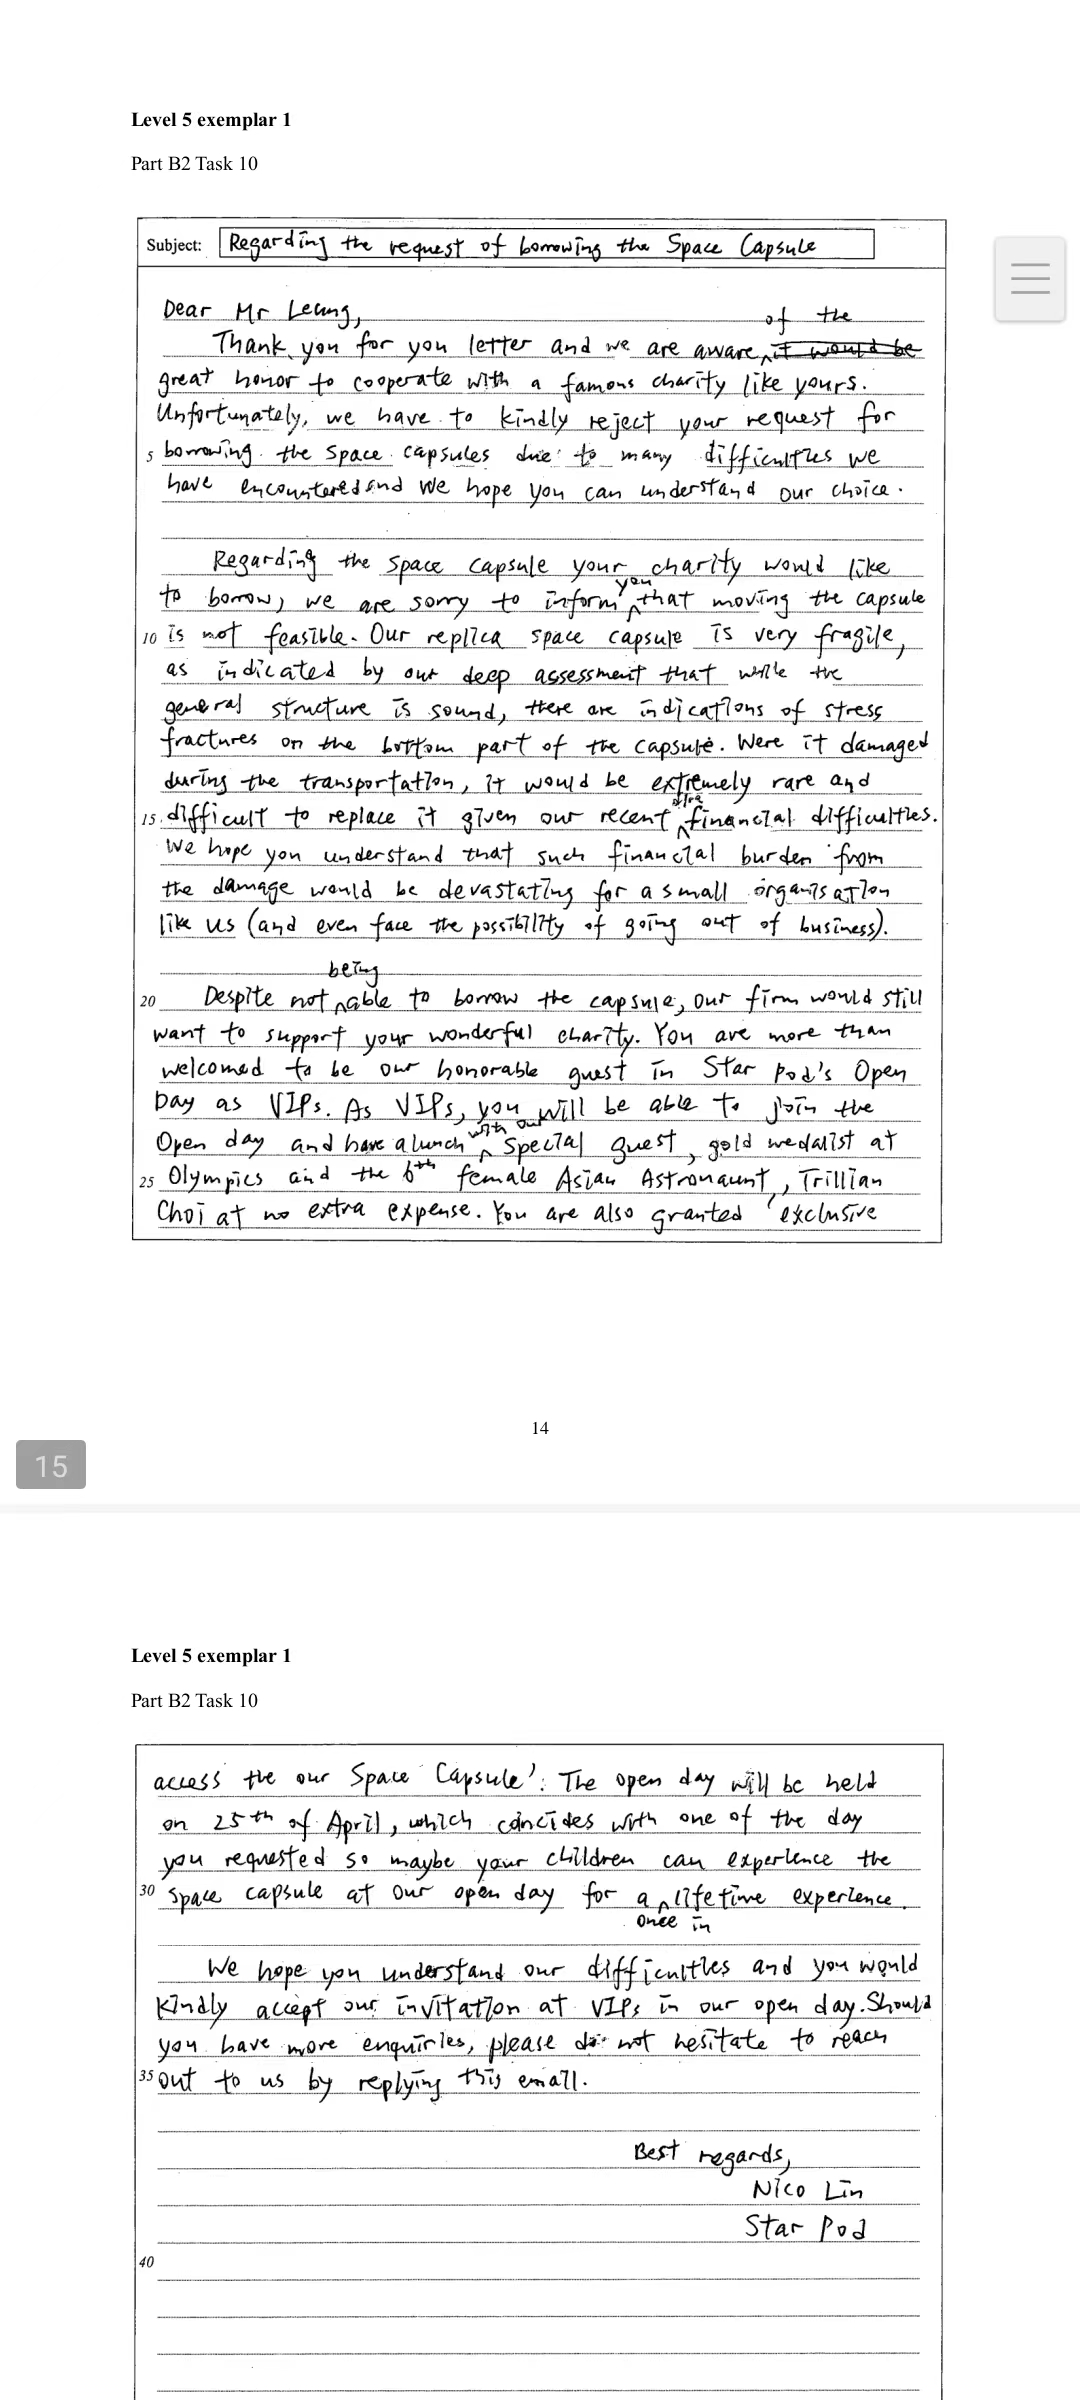 Level 5 exemplar 1
Part B2 Task 10
Subject: Regarding the request of borrowing the Space Capsule
Dear Mr Leung,
of the
Thank you for you letter and we are aware it would be
great honor to cooperate with a famous charity like yours.
Unfortunately, we have to kindly reject your request for
5 borrowing the space capsules due to many difficulties we
have encountered and we hope you can understand our choice.
Regarding the space capsule your charity would like
you
to borrow, we are sorry to inform that moving the capsule
10 is not feasible. Our replica space capsule is very fragile,
as indicated by our deep assessment that while the
general structure is sound, there are indications of stress
fractures on the bottom part of the capsule. Were it damaged
during the transportation, it would be extremely rare and
15 difficult to replace it given our recent financial difficulties.
We hope you understand that such financial burden from
the damage would be devastating for a small organisation
like us (and even face the possibility of going out of business).
being
20 Despite not able to borrow the capsule, our firm would still
want to support your wonderful charity. You are more than
welcomed to be our honorable guest in Star Pod's Open
Day as VIPs. As VIPs, you will be able to join the
with our
Open day and have a lunch special guest, gold medalist at
25 Olympics and the 6th female Asian Astronaunt, Trillian
Choi at no extra expense. You are also granted 'exclusive
14
15
Level 5 exemplar 1
Part B2 Task 10
access the our Space Capsule'. The open day will be held
on 25th of April, which coincides with one of the day
you requested so maybe your children can experience the
30 space capsule at our open day for a lifetime experience.
once in
We hope you understand our difficulties and you would
kindly accept our invitation at VIPs in our open day. Should
you have more enquiries, please do not hesitate to reach
35 out to us by replying this email.
Best regards,
Nico Lin
Star Pod
40